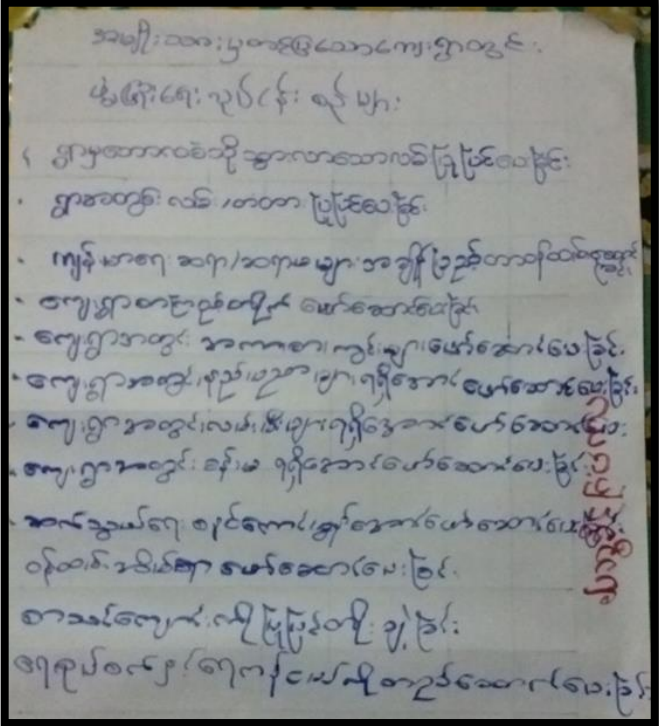 အမျိုးသားမှတင်ပြသောကျေးရွာတွင်း
ဖွံ့ဖြိုးရေးလုပ်ငန်းစဉ်များ
ရွာမှတောလမ်းသို့သွားလာသောလမ်းပြုပြင်ပေးခြင်း
• ရွာအတွင်းလမ်း/တံတားပြုပြင်ပေးခြင်း
• ကျန်းမာရေးဆရာ/ဆရာမများအချိန်ပြည့်တာဝန်ထမ်း
• ကျေးရွာစာကြည့်တိုက်ဖော်ဆောင်ပေးခြင်း
• ကျေးရွာအတွင်းအားကစားကွင်းများဖော်ဆောင်ပေးခြင်း
• ကျေးရွာအတွင်းနည်းပညာများရရှိအောင်ဖော်ဆောင်ပေးခြင်း
• ကျေးရွာအတွင်းလမ်းမီးများရရှိအောင်ဖော်ဆောင်ပေး
• ကျေးရွာအတွင်းခန်းမရရှိအောင်ဖော်ဆောင်ပေးခြင်း
• ဆက်သွယ်ရေးလိုင်းကောင်းရန်အောင်ဖော်ဆောင်ပေးခြင်း
ဝန်ထမ်းအိမ်ရာဖော်ဆောင်ပေးခြင်း
စာသင်ကျောင်းကိုပြုပြင်တိုးချဲ့ခြင်း
ရေကန်ငယ်ကိုတည်ဆောက်ပေးခြင်း